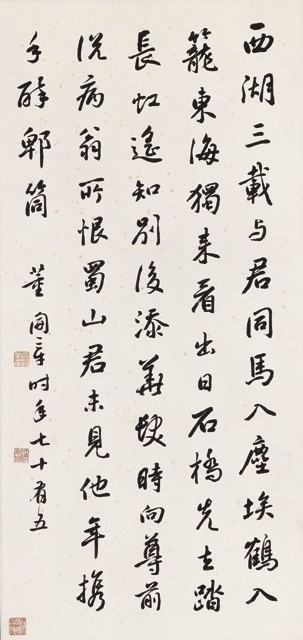 西湖三載与君同馬入塵埃鶴入
籠東海獨来看出日石橋先去踏
長虹遙知別後添華髮時向尊前
說病翁所恨蜀山君未見他年携
手醉郫筒 董開章時年七十有五